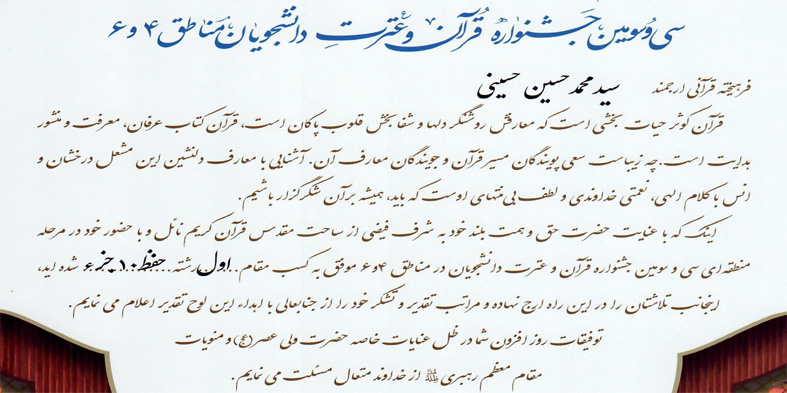 سی و سومین جشنواره قرآن و عترت دانشجویان مناطق ۴ و ۶
فرهیخته قرآنی ارجمند سید محمد حسین حسینی
قرآن کوثر حیات بخشی است که معارفش روشنگر دلها و شفابخش قلوب پاکان است، قرآن کتاب عرفان، معرفت و منشور
هدایت است. چه زیباست سعی پویندگان مسیر قرآن و جویندگان معارف آن. آشنایی با معارف دلنشین این مشعل درخشان و
انس با کلام الهی، نعمتی خداوندی و لطف بی منتهای اوست که باید، همیشه بر آن شکرگزار باشیم.
اینک که با عنایت حضرت حق و همت بلند خود به شرف فیضی از ساحت مقدس قرآن کریم نائل و با حضور خود در مرحله
منطقه ای سی و سومین جشنواره قرآن و عترت دانشجویان در مناطق ۴ و ۶ موفق به کسب مقام ..اول.. رشته ..حفظ ۱۰ جزء.. شده اید،
اینجانب تلاشتان را در این راه ارج نهاده و مراتب تقدیر و تشکر خود را از جنابعالی با اهداء این لوح تقدیر اعلام می نمایم.
توفیقات روز افزون شما در ظل عنایات خاصه حضرت ولی عصر(عج) و منویات
مقام معظم رهبری از خداوند متعال مسئلت می نمایم.